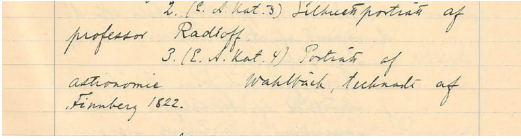 2. (E. A. Kat. 3) Silhuettporträtt af
professor Radloff
3. (E. A. Kat. 4) Porträtt af
astronomie Wahlbäck, tecknadt af
Finnberg 1822.